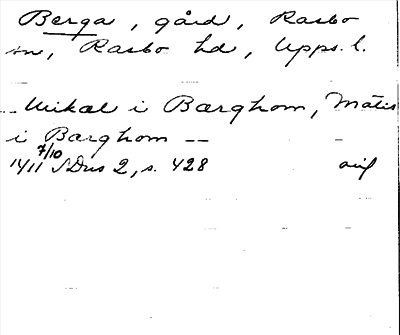 Berga, gård, Rasbo
sn, Rasbo hd, Upps. l.
__ Mikal i Bærghom, Mátis
i Bærghom __
7/10
14/11 SDns 2, s. 428